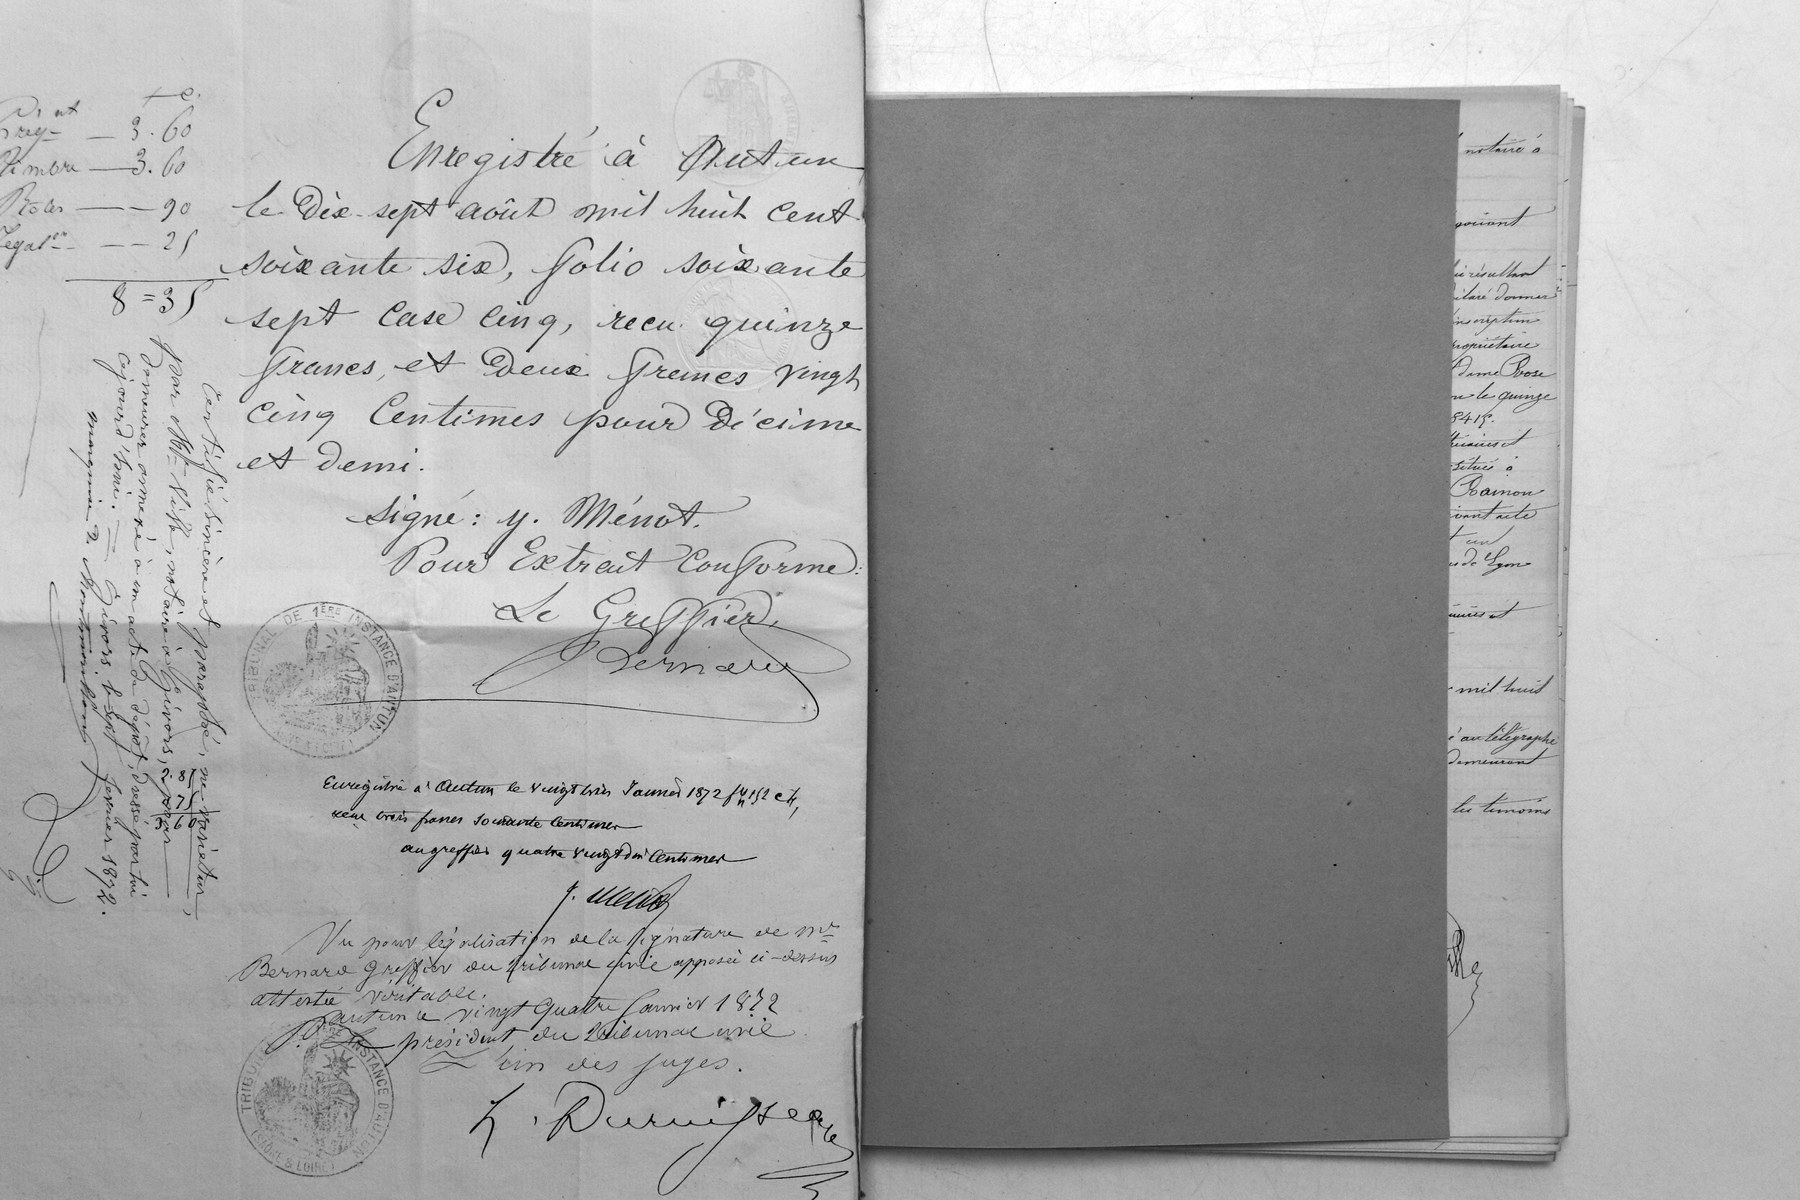 f c.
Enreg.nt — 3.60
Timbre — 3.60
Rôles — 90
Légal.on — 25
8 = 35
Enregistré à Autun
le Dix-sept août mil huit cent
soixante six, folio soixante
sept case cinq, recu quinze
francs, et Deux francs vingt
cinq Centimes pour Décime
et demi.
signé: y. Ménot.
Pour Extrait Conforme:
Le Greffier,
Bernard
TRIBUNAL DE 1ÈRE INSTANCE D'AUTUN
Certifié sincère et paraphé, ne varietur,
par Mr notaire à Givors, pour
demeurer annexé à un acte de dépôt, dressé par lui
cejourd'hui. = Givors, le février 1872.
2.85
75
3 60
Enregistré à Autun le vingt trois Janvier 1872 fo 152 c
reçu trois francs soixante centimes
au greffier quatre vingt dix centimes
y. Menot
Vu pour légalisation de la signature de Mr
Bernard greffier du tribunal civil apposée ci-dessus
attestée véritable.
autun le vingt quatre Janvier 1872
P. Le président du tribunal civil
L'un des juges.
TRIBUNAL DE 1ÈRE INSTANCE D'AUTUN
(SAÔNE & LOIRE)
notaire à
résultant
donner
inscription
propriétaire
dame Rose
le quinze
situés à
Rainon
de Lyon
mil huit
au télégraphe
demeurant
les témoins